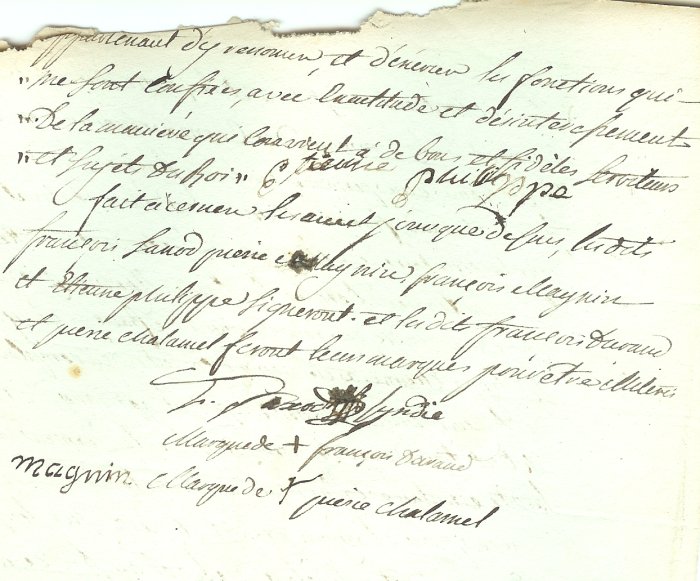 appartenant d'y renomer, et d'exercer les fonctions qui
" me sont confiées, avec Exactitude et désinteressement
" De la maniere qui Convient a de bons et fidèles serviteurs
" et sujets du Roi " Etienne philippe
fait à cernen les ans et jour que dessus, lesdits
françois Pierre Magnin, françois Magnin
et Etienne philippe signeront. et lesdit françois Durand
et pierre chalamel feront leurs marques pour etre illiterés
syndic
Marque de + françois Durand
magnin Marque de + pierre chalamel